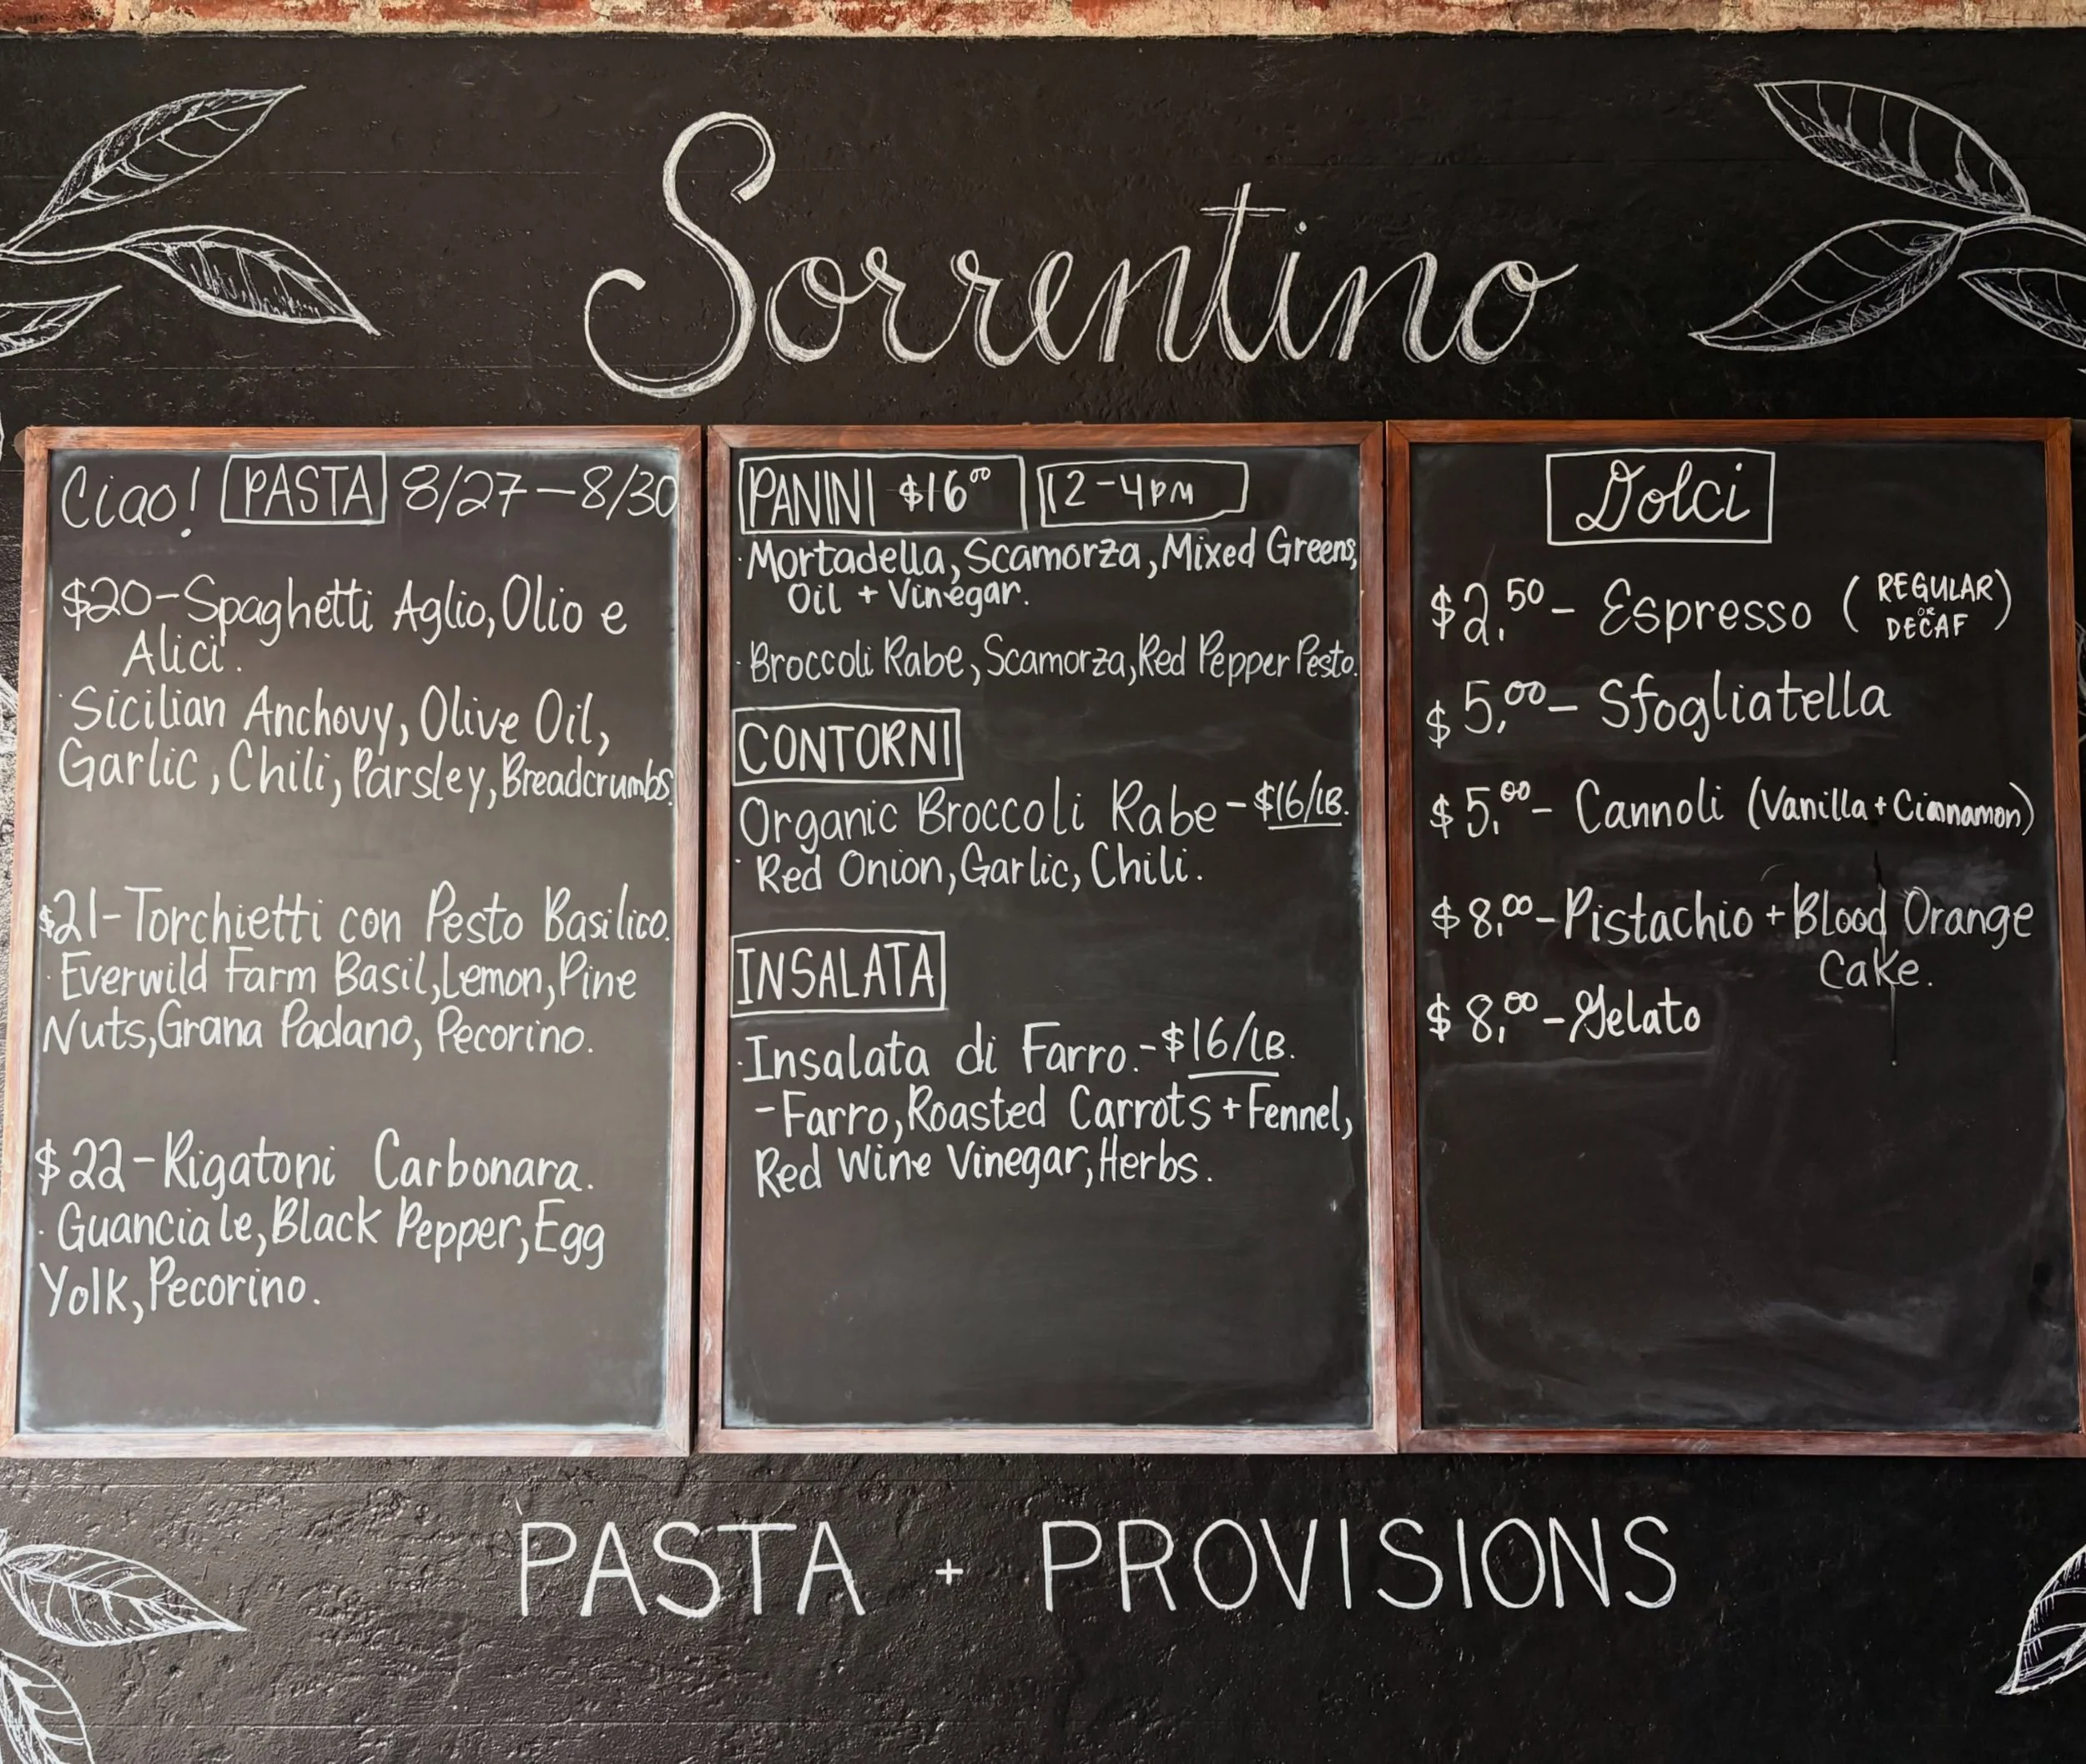 Sorrentino
Ciao! PASTA 8/27-8/30
$20-Spaghetti Aglio, Olio e
Alici.
·Sicilian Anchovy, Olive Oil,
Garlic, Chili, Parsley, Breadcrumbs.
$21-Torchietti con Pesto Basilico.
·Everwild Farm Basil, Lemon, Pine
Nuts, Grana Padano, Pecorino.
$22-Rigatoni Carbonara.
·Guanciale, Black Pepper, Egg
Yolk, Pecorino.
PANINI $16.00 12-4PM
·Mortadella, Scamorza, Mixed Greens,
Oil + Vinegar.
·Broccoli Rabe, Scamorza, Red Pepper Pesto.
CONTORNI
Organic Broccoli Rabe-$16/LB.
·Red Onion, Garlic, Chili.
INSALATA
·Insalata di Farro.-$16/LB.
-Farro, Roasted Carrots + Fennel,
Red Wine Vinegar, Herbs.
Dolci
$2.50- Espresso (REGULAR OR DECAF)
$5.00- Sfogliatella
$5.00- Cannoli (Vanilla + Cinnamon)
$8.00-Pistachio + Blood Orange
Cake.
$8.00-Gelato
PASTA + PROVISIONS